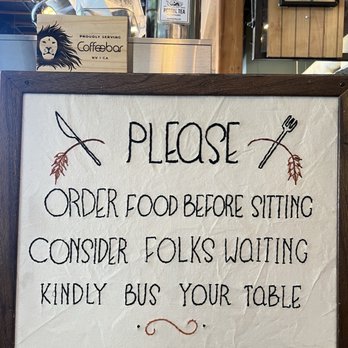 PROUDLY SERVING
Coffeebar
NV | CA
PLEASE
ORDER FOOD BEFORE SITTING
CONSIDER FOLKS WAITING
KINDLY BUS YOUR TABLE